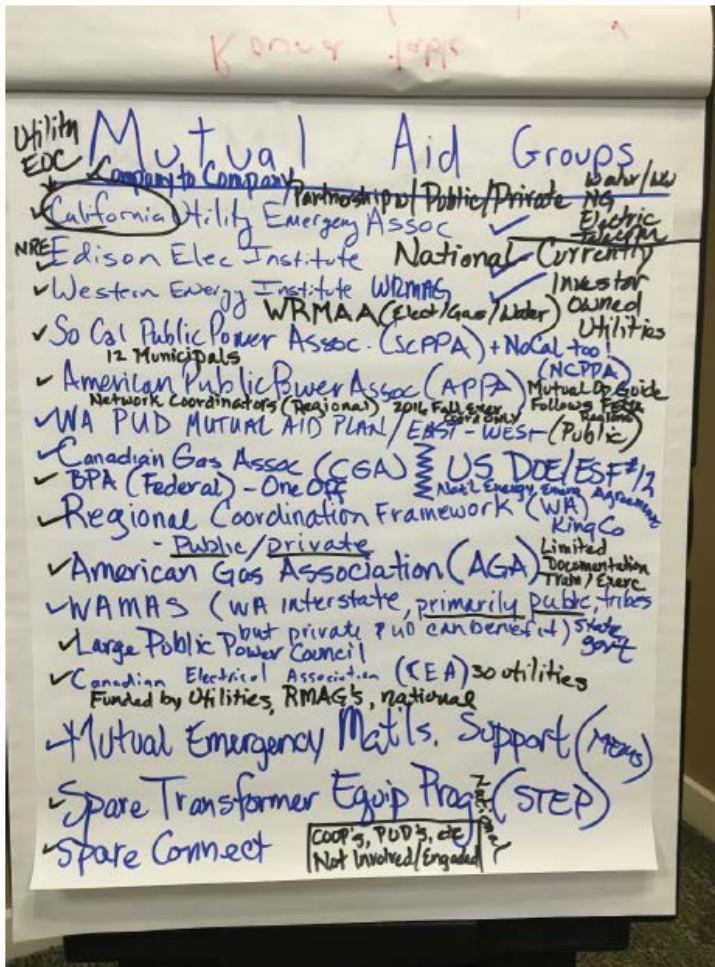 Mutual Aid Groups
Utility
EOC
Company to Company
Partnership w/ Public/Private
Water/WW
NG
Electric
Telecom
California Utility Emergency Assoc
NRE
Edison Elec Institute National - Currently
Investor
Owned
Utilities
Western Energy Institute WRMAG
WRMAA (Elect/Gas/Water)
So Cal Public Power Assoc. (SCPPA) + NoCal too!
(NCPPA)
12 Municipals
American Public Power Assoc (APPA) Mutual Op Guide
Network Coordinators (Regional) 2016 Fall Exer
Follows FEMA
Regions
WA PUD MUTUAL AID PLAN / EAST - WEST - (Public)
Canadian Gas Assoc (CGA) US DOE/ESF #12
Nat'l Energy Emer. Agreement
BPA (Federal) - One Off
Regional Coordination Framework (WA)
KingCo
- Public/private
American Gas Association (AGA) Limited
Documentation
Train/Exerc
WAMAS (WA interstate, primarily public, tribes
but private PUD can benefit) State
gov't
Large Public Power Council
Canadian Electrical Association (CEA) 30 utilities
Funded by Utilities, RMAG's, national
Mutual Emergency Mat'ls. Support (MEMS)
Spare Transformer Equip Prog. (STEP)
National
Spare Connect
COOP's, PUD's, etc
Not Involved/Engaged